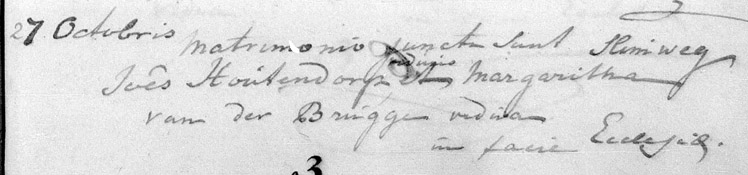 27 Octobris
matrimonio juncti sunt Slimweg
viduus
Joês Houtendorp et Margaritha
van der Brugge vidua
in facie Ecclesiæ.
3